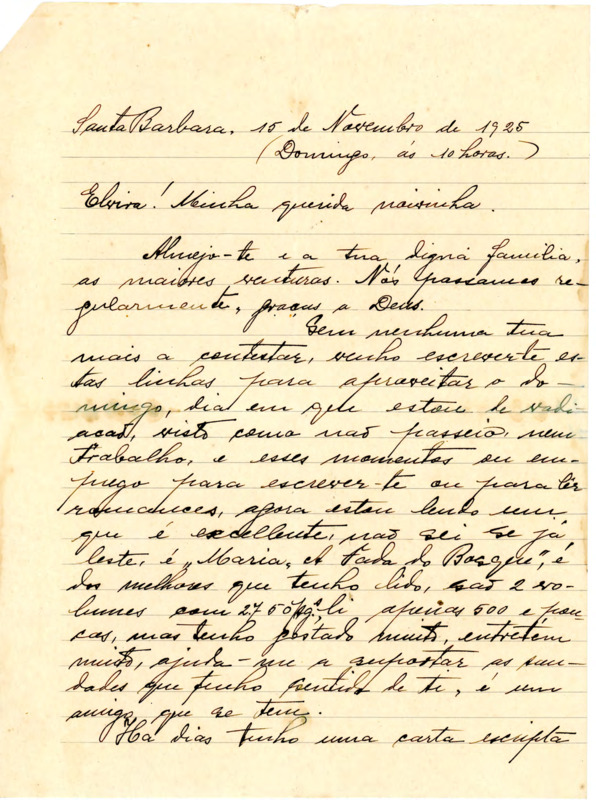 Santa Barbara, 15 de Novembro de 1925
(Domingo, ás 10 horas.)
Elvira! Minha querida noivinha.
Almejo-te e a tua digna familia,
as maiores venturas. Nós passamos re-
gularmente, graças a Deus.
Sem nenhuma tua
mais a contestar, venho escrever-te es-
tas linhas para aproveitar o do-
mingo, dia em que estou de vadi-
acaõ, visto como naõ passeio, nem
trabalho, e esses momentos ou em-
prego para escrever-te ou para lêr
romances, agora estou lendo um
que é excellente, naõ sei se já
leste, é "Maria, A Fada do Bosque", é
dos melhores que tenho lido, saõ 2 vo-
lumes com 2750 pgs, li apenas 500 e pou-
cas, mas tenho gostado muito, entretém
muito, ajuda-me a supportar as sau-
dades que tenho sentido de ti, é um
amigo que se tem.
Há dias tenho uma carta escripta